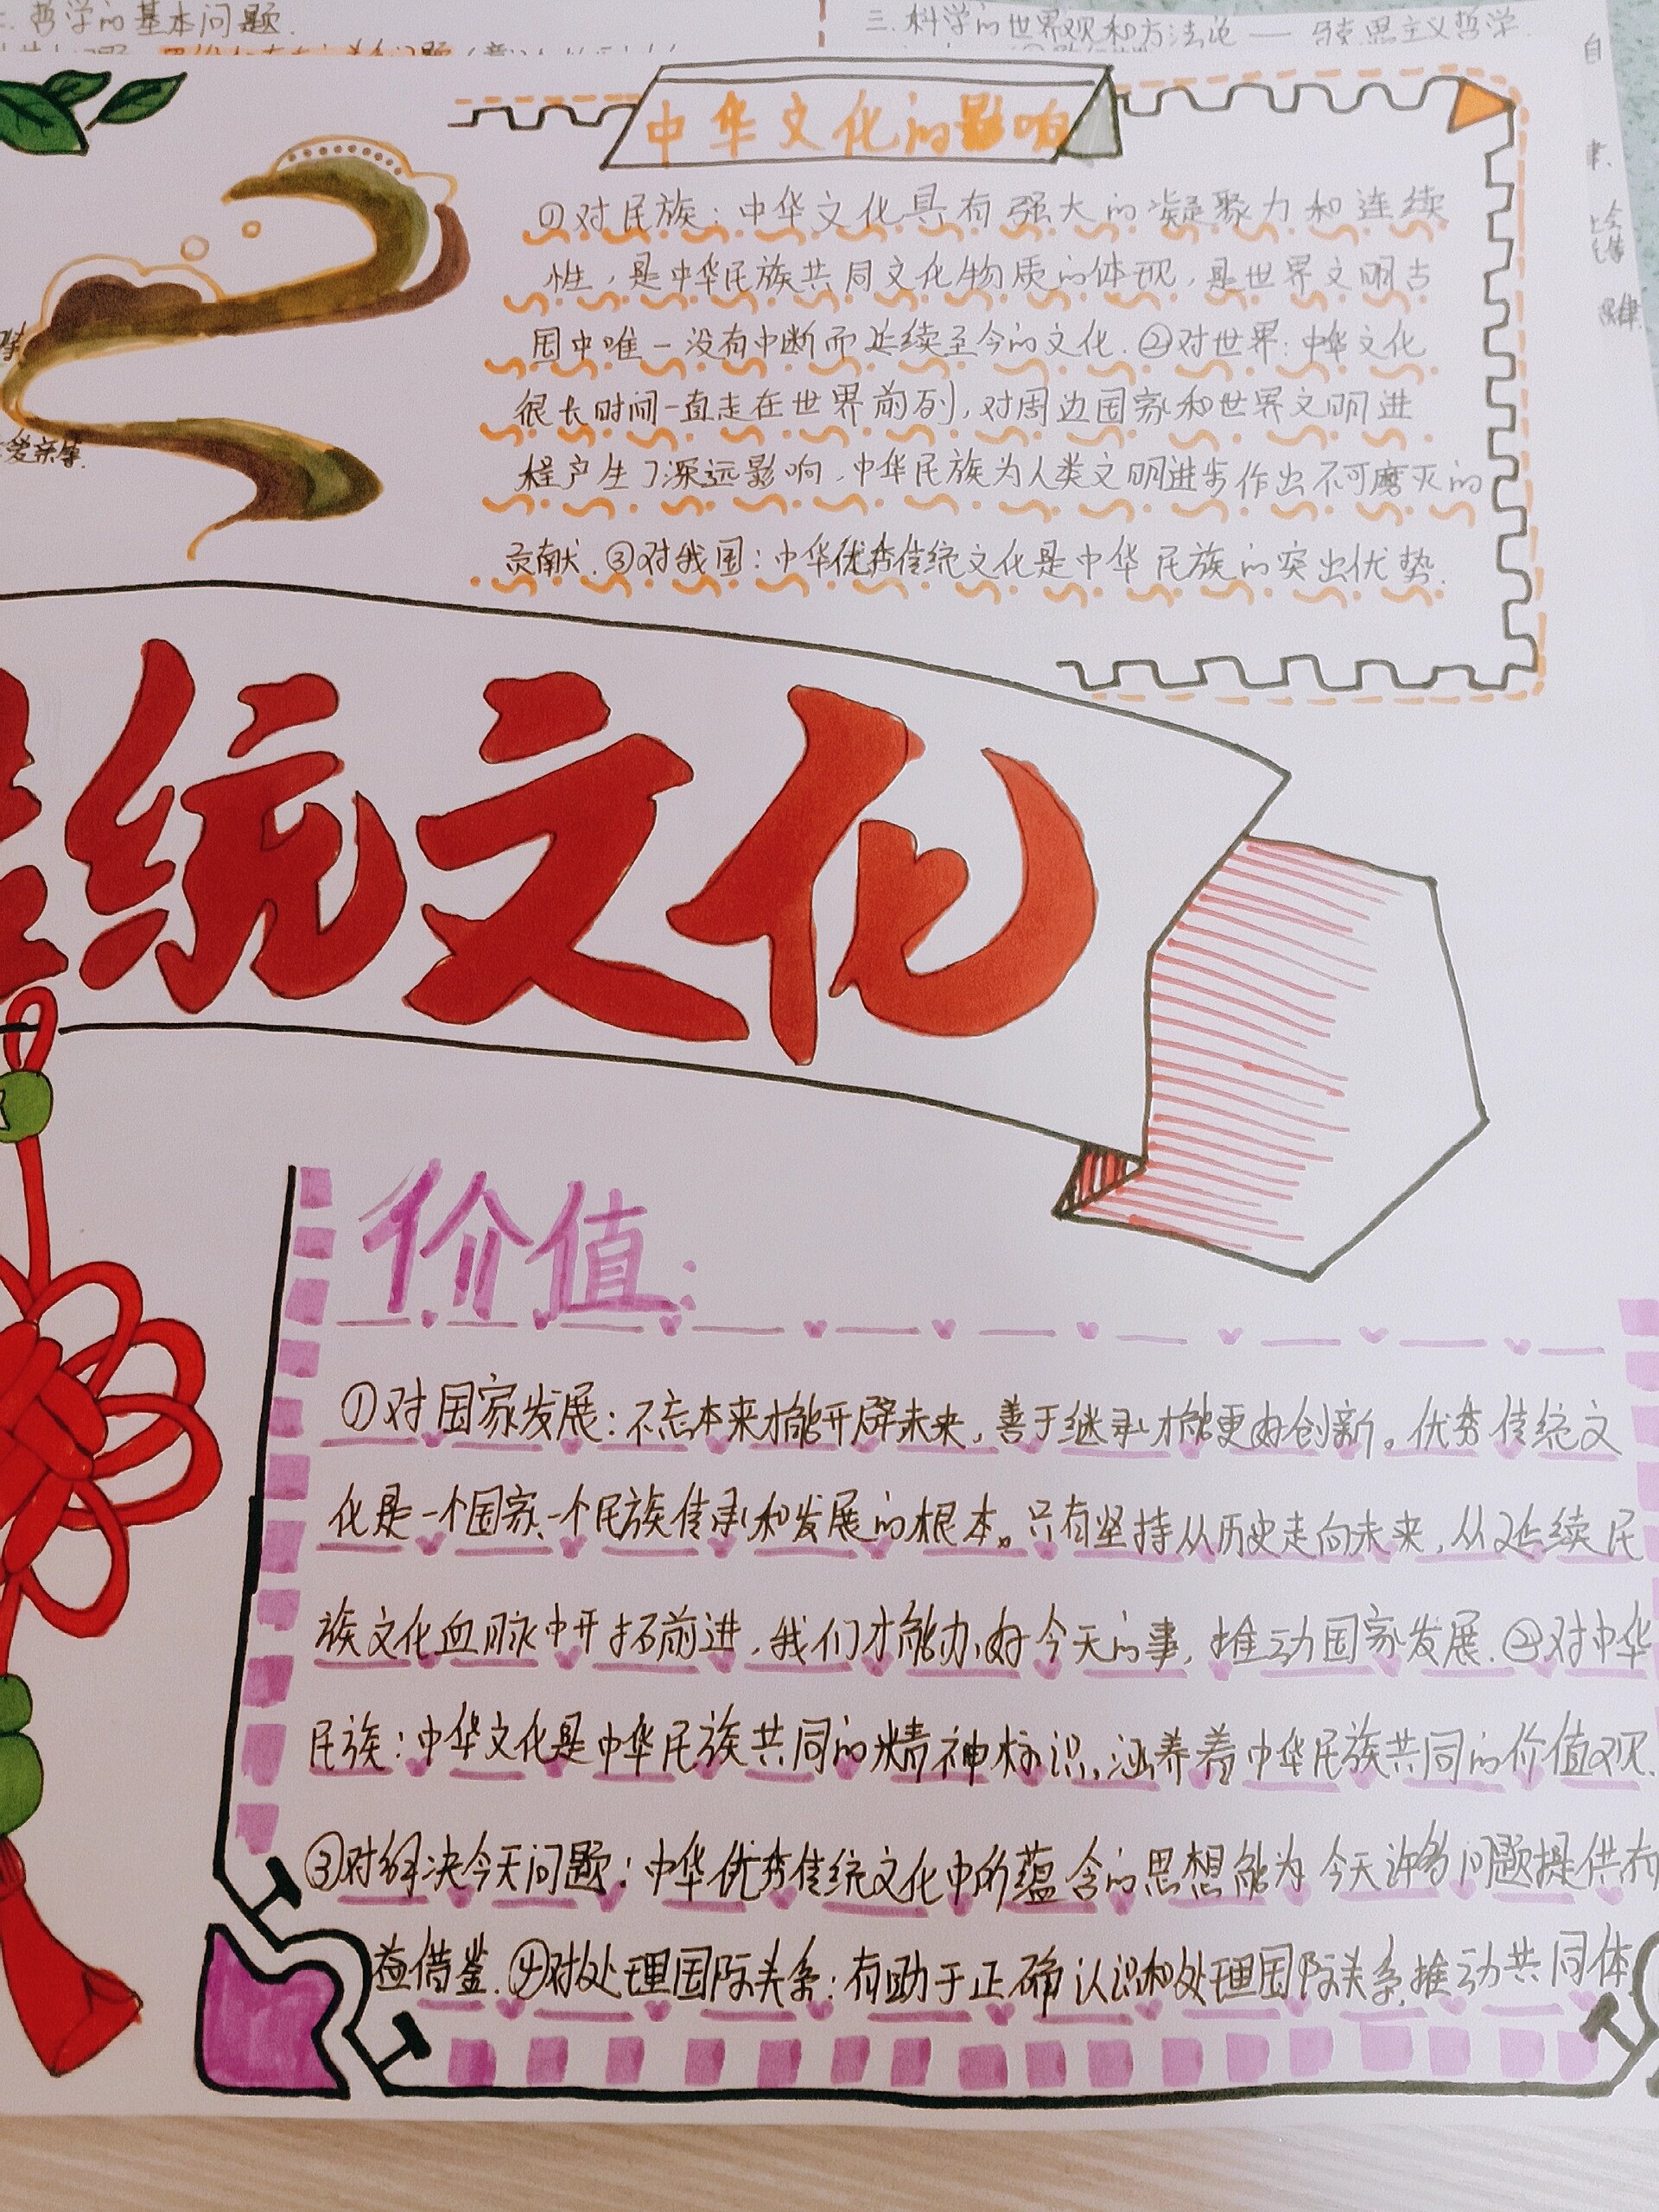 哲学的基本问题.
三.科学的世界观和方法论——马克思主义哲学.
中华文化的影响
①对民族:中华文化具有强大的凝聚力和连续
性,是中华民族共同文化物质的体现,是世界文明古
国中唯一没有中断而延续至今的文化.②对世界:中华文化
很长时间一直走在世界前列,对周边国家和世界文明进
程产生了深远影响,中华民族为人类文明进步作出不可磨灭的
贡献.③对我国:中华优秀传统文化是中华民族的突出优势.
爱亲.
传统文化
价值:
①对国家发展:不忘本来才能开辟未来,善于继承才能更好创新。优秀传统文
化是一个国家、一个民族传承和发展的根本。只有坚持从历史走向未来,从延续民
族文化血脉中开拓前进,我们才能办好今天的事,推动国家发展.②对中华
民族:中华文化是中华民族共同的精神标识,涵养着中华民族共同的价值观.
③对解决今天问题:中华优秀传统文化中所蕴含的思想能为今天许多问题提供有
益借鉴.④对处理国际关系:有助于正确认识和处理国际关系,推动共同体